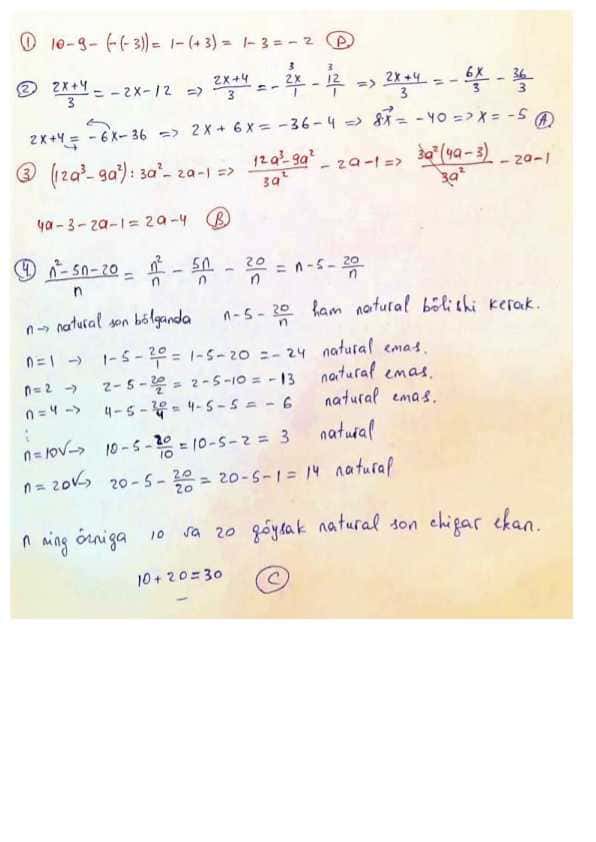 ① 10-9-(-(-3)) = 1-(+3) = 1-3 = -2 (D)
② (2x+4)/3 = -2x-12 => (2x+4)/3 = -2x/1 - 12/1 => (2x+4)/3 = -6x/3 - 36/3
2x+4 = -6x-36 => 2x+6x = -36-4 => 8x = -40 => x = -5 (A)
③ (12a³-9a²):3a²-2a-1 => (12a³-9a²)/3a² - 2a-1 => 3a²(4a-3)/3a² - 2a-1
4a-3-2a-1 = 2a-4 (B)
④ (n²-5n-20)/n = n²/n - 5n/n - 20/n = n-5-20/n
n → natural son bo'lganda n-5-20/n ham natural bo'lishi kerak.
n=1 → 1-5-20/1 = 1-5-20 = -24 natural emas.
n=2 → 2-5-20/2 = 2-5-10 = -13 natural emas.
n=4 -> 4-5-20/4 = 4-5-5 = -6 natural emas.
⋮
n=10√→ 10-5-20/10 = 10-5-2 = 3 natural
n=20√→ 20-5-20/20 = 20-5-1 = 14 natural
n ning órniga 10 va 20 qóysak natural son chiqar ekan.
10+20=30 (C)